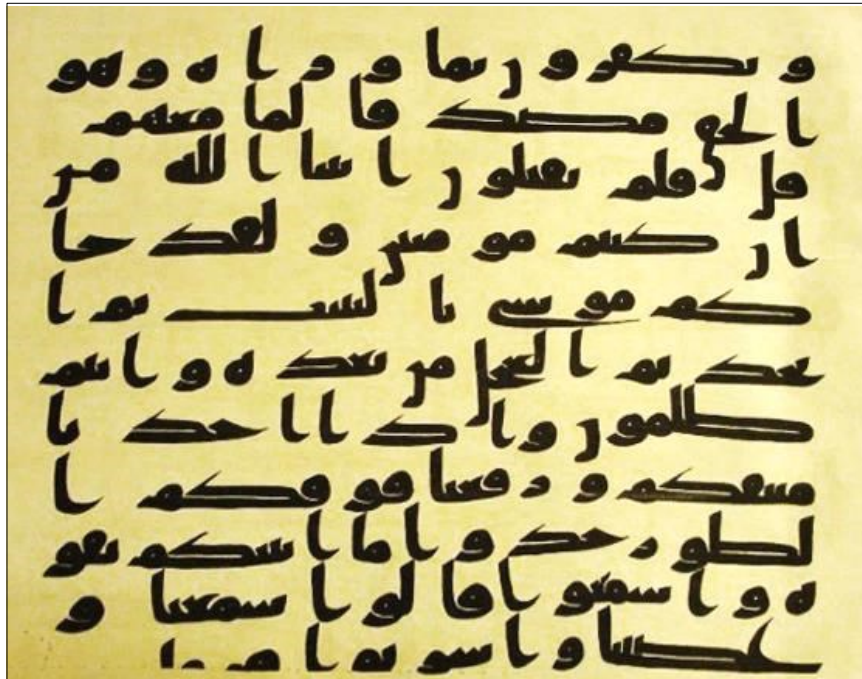 ويكفرون بما وراه وهو
الحق مصدقا لما معهم
قل فلم تقتلون انبيا الله من
ان كنتم مومنين ولقد جا
كم موسى بالبينت ثم ا
تخذتم العجل من بعده وانتم
ظلمون واذ اخذنا
ميثقكم ورفعنا فوقكم ا
لطور خذوا ما اتينكم بقو
ة واسمعوا قالوا سمعنا و
عصينا واشربوا